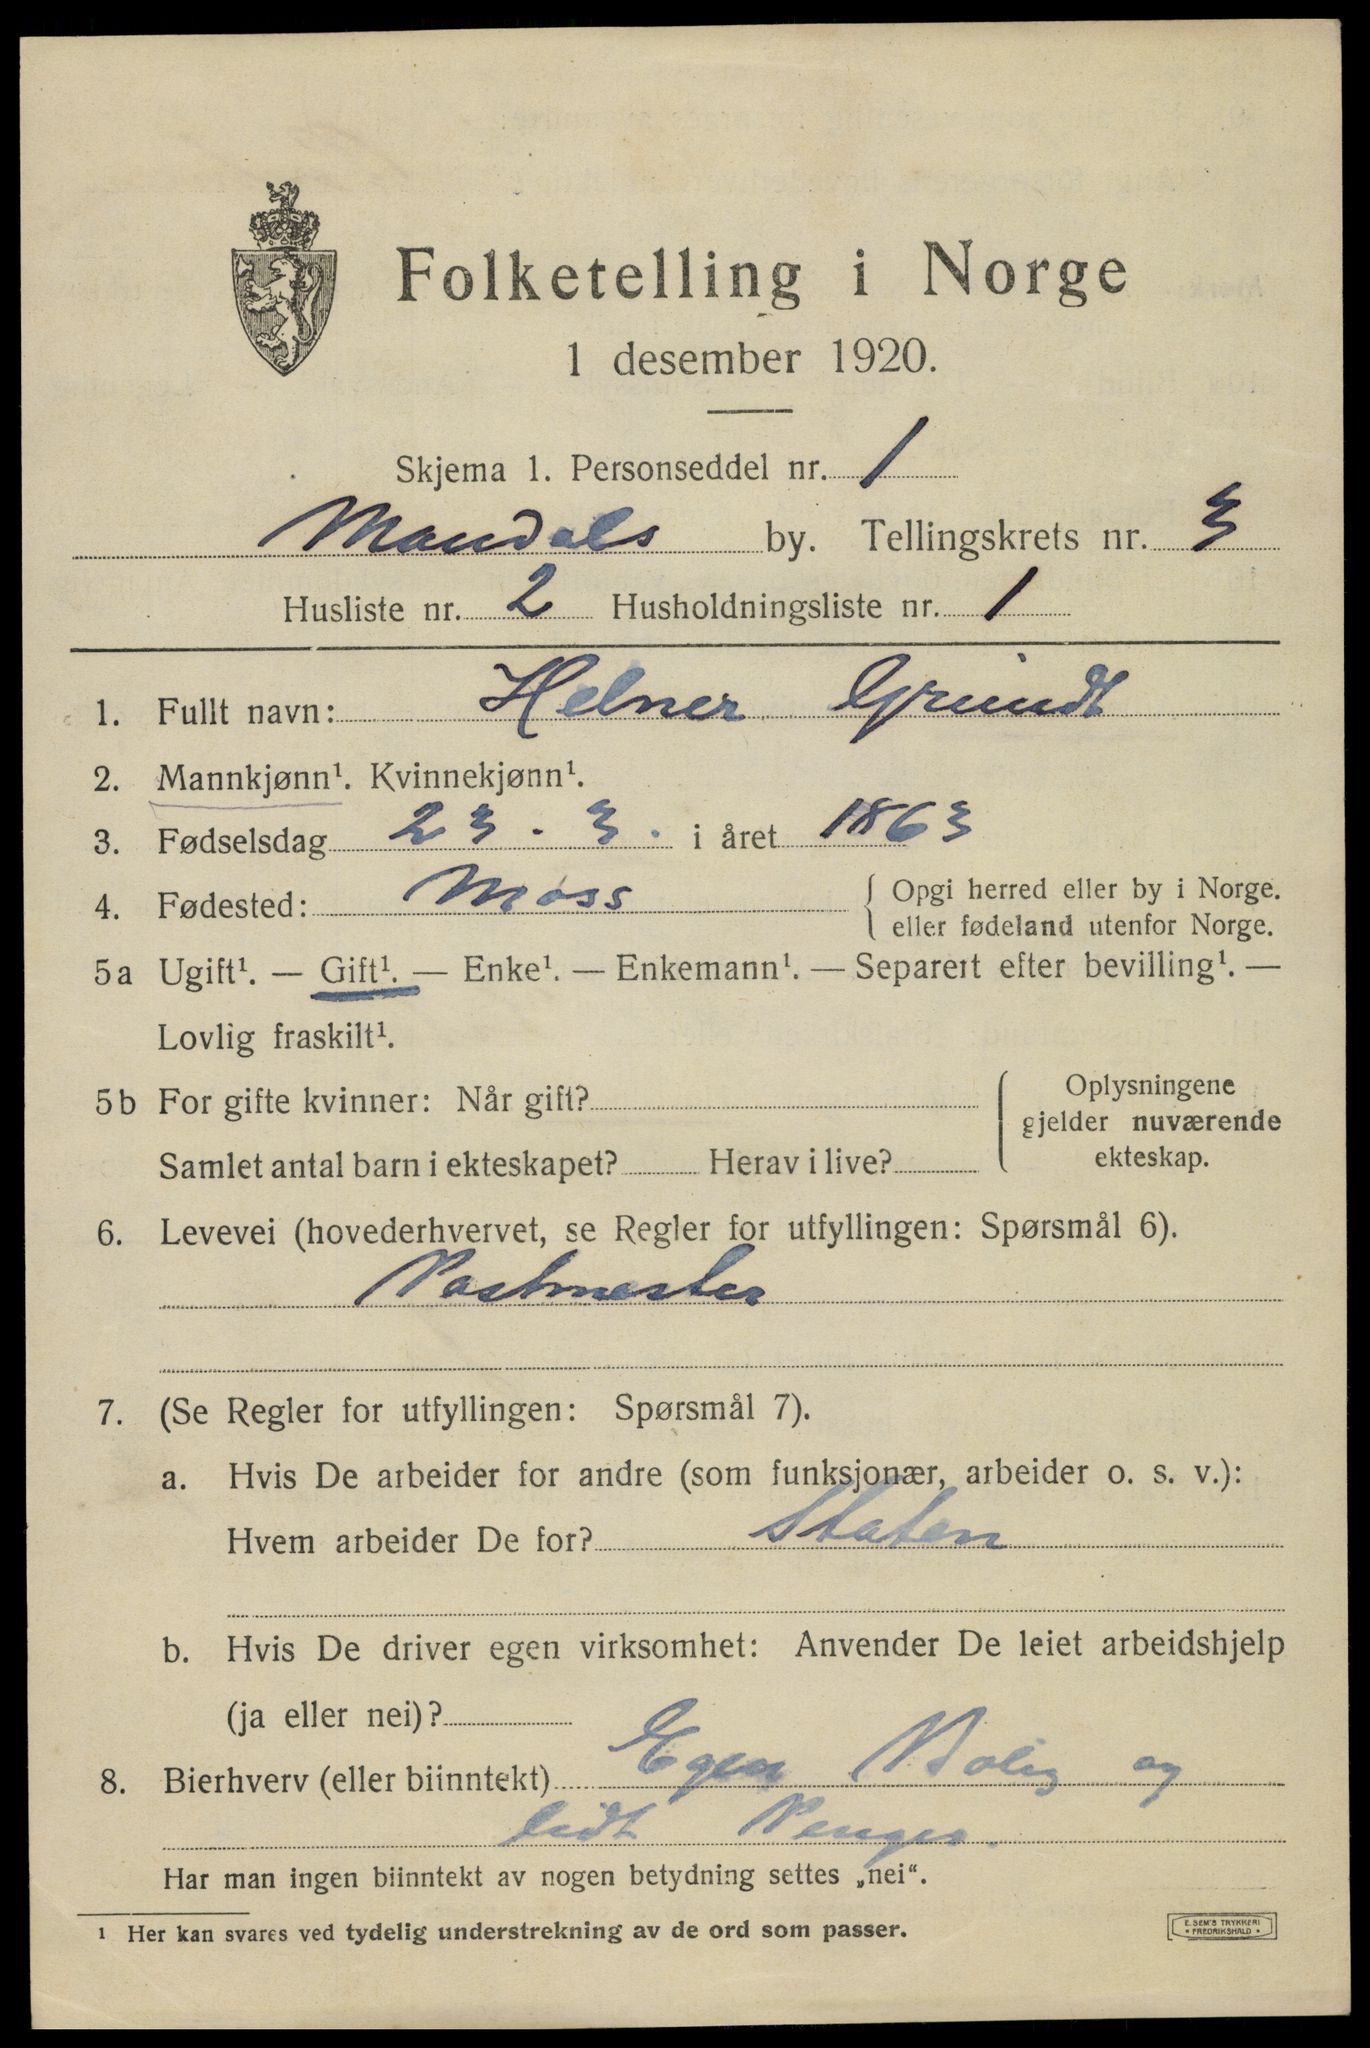 Folketelling i Norge
1 desember 1920.
Skjema 1. Personseddel nr. 1
Mandals by. Tellingskrets nr. 3
Husliste nr. 2 Husholdningsliste nr. 1
1. Fullt navn: Helner Grundt
2. Mannkjønn¹. Kvinnekjønn¹.
3. Fødselsdag 23. 3. i året 1863
4. Fødested: Moss { Opgi herred eller by i Norge.
eller fødeland utenfor Norge.
5a Ugift¹. — Gift¹. — Enke¹. — Enkemann¹. — Separert efter bevilling¹. —
Lovlig fraskilt¹.
5b For gifte kvinner: Når gift? Oplysningene
gjelder nuværende
Samlet antal barn i ekteskapet? Herav i live? ekteskap.
6. Levevei (hovederhvervet, se Regler for utfyllingen: Spørsmål 6).
Postmester
7. (Se Regler for utfyllingen: Spørsmål 7).
a. Hvis De arbeider for andre (som funksjonær, arbeider o. s. v.):
Hvem arbeider De for? Staten
b. Hvis De driver egen virksomhet: Anvender De leiet arbeidshjelp
(ja eller nei)?
8. Bierhverv (eller biinntekt) Egen Bolig og
lidt Penger.
Har man ingen biinntekt av nogen betydning settes „nei“.
¹ Her kan svares ved tydelig understrekning av de ord som passer.
E. SEM'S TRYKKERI
• FREDRIKSHALD •